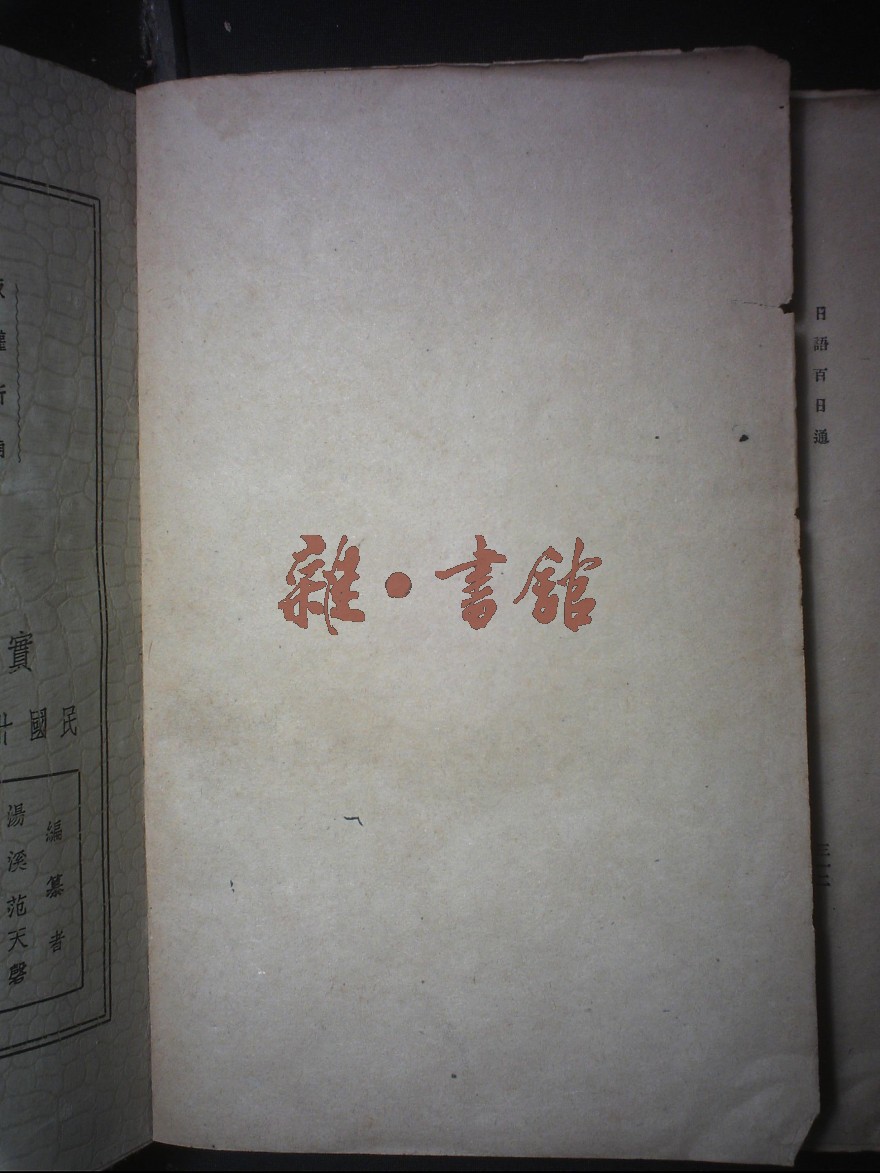 日語百日通
三一三
雜·書館
版權所有
實
民國廿
編纂者
湯溪范天磬